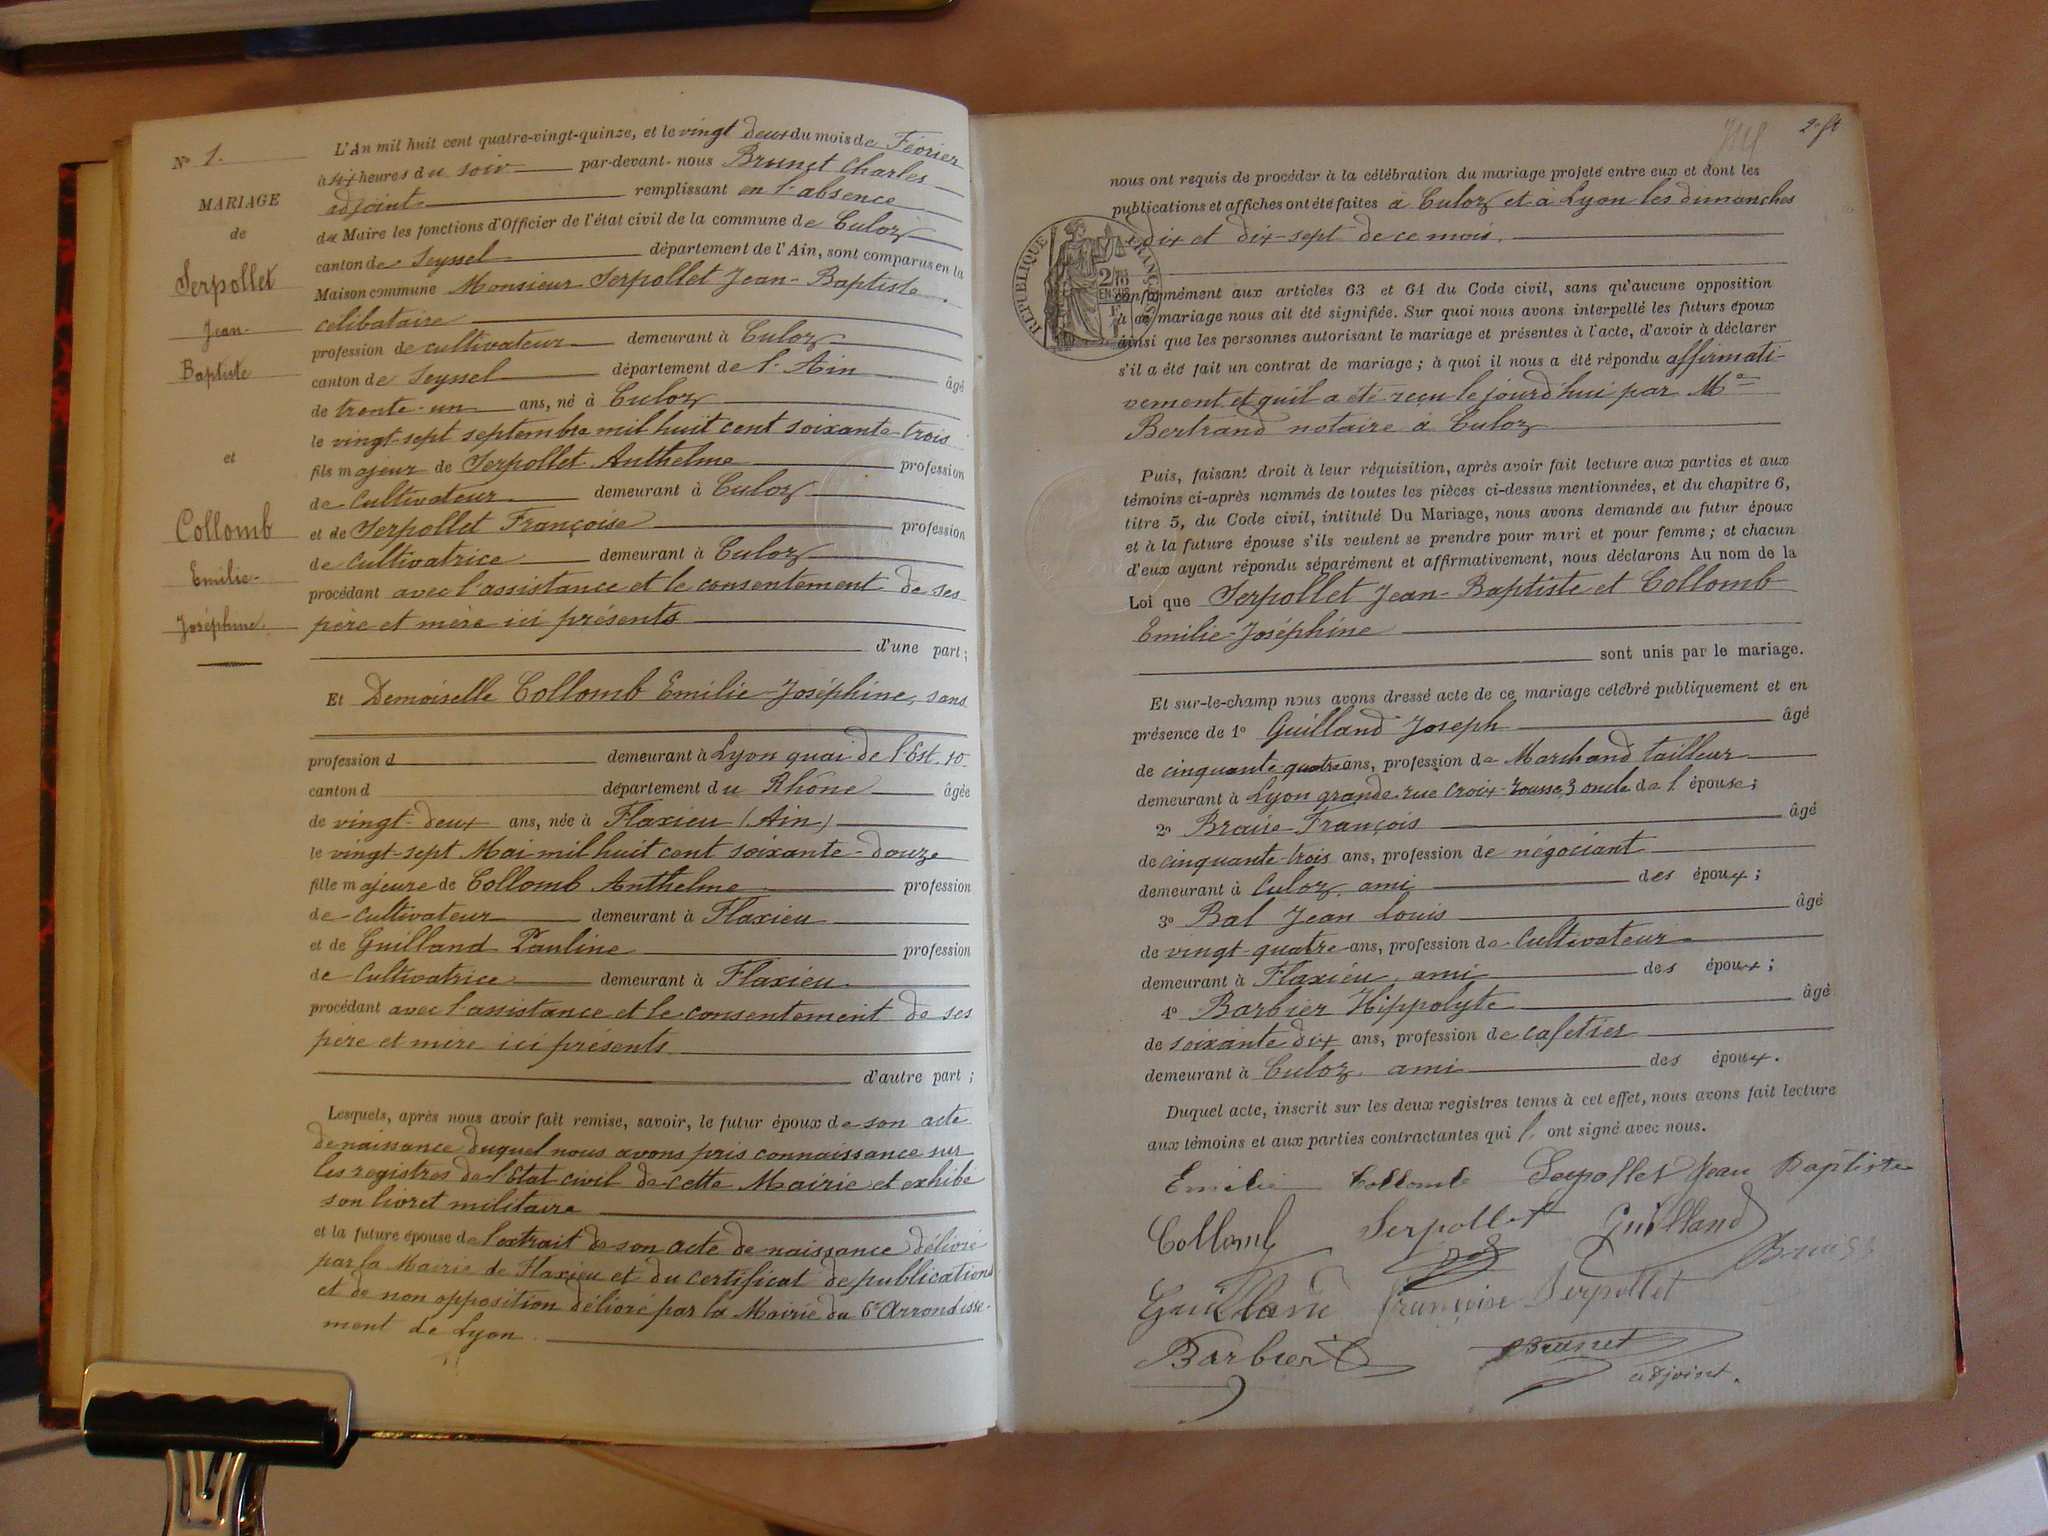 N° 1.
MARIAGE
de
Serpollet
Jean-
Baptiste
et
Collomb
Emilie-
Joséphine.
L'An mil huit cent quatre-vingt-quinze, et le vingt deux du mois de Février
à six heures du soir par-devant-nous Brunet Charles
adjoint remplissant en l'absence
du Maire les fonctions d'Officier de l'état civil de la commune de Culoz
canton de Seyssel département de l'Ain, sont comparus en la
Maison commune Monsieur Serpollet Jean-Baptiste
célibataire
profession de cultivateur demeurant à Culoz
canton de Seyssel département de l'Ain âgé
de trente-un ans, né à Culoz
le vingt-sept septembre mil huit cent soixante-trois
fils majeur de Serpollet Anthelme profession
de cultivateur demeurant à Culoz
et de Serpollet Françoise profession
de cultivatrice demeurant à Culoz
procédant avec l'assistance et le consentement de ses
père et mère ici présents
d'une part;
Et Demoiselle Collomb Emilie-Joséphine, sans
profession d demeurant à Lyon quai de l'Est. 10.
canton d département du Rhône âgée
de vingt-deux ans, née à Flaxieu (Ain)
le vingt-sept Mai mil huit cent soixante-douze
fille majeure de Collomb Anthelme profession
de cultivateur demeurant à Flaxieu
et de Guilland Pauline profession
de cultivatrice demeurant à Flaxieu
procédant avec l'assistance et le consentement de ses
père et mère ici présents
d'autre part;
Lesquels, après nous avoir fait remise, savoir, le futur époux de son acte
de naissance duquel nous avons pris connaissance sur
les registres de l'Etat civil de cette Mairie et exhibé
son livret militaire
et la future épouse de l'extrait de son acte de naissance délivré
par la Mairie de Flaxieu et du certificat de publications
et de non opposition délivré par la Mairie du 6e Arrondisse-
ment de Lyon.
2e ft
nous ont requis de procéder à la célébration du mariage projeté entre eux et dont les
publications et affiches ont été faites à Culoz et à Lyon les dimanches
dix et dix-sept de ce mois.
RÉPUBLIQUE FRANÇAISE
conformément aux articles 63 et 64 du Code civil, sans qu'aucune opposition
à ce mariage nous ait été signifiée. Sur quoi nous avons interpellé les futurs époux
ainsi que les personnes autorisant le mariage et présentes à l'acte, d'avoir à déclarer
s'il a été fait un contrat de mariage; à quoi il nous a été répondu affirmati-
vement et qu'il a été reçu le jourd'hui par Me
Bertrand notaire à Culoz
Puis, faisant droit à leur réquisition, après avoir fait lecture aux parties et aux
témoins ci-après nommés de toutes les pièces ci-dessus mentionnées, et du chapitre 6,
titre 5, du Code civil, intitulé Du Mariage, nous avons demandé au futur époux
et à la future épouse s'ils veulent se prendre pour mari et pour femme; et chacun
d'eux ayant répondu séparément et affirmativement, nous déclarons Au nom de la
Loi que Serpollet Jean-Baptiste et Collomb
Emilie-Joséphine
sont unis par le mariage.
Et sur-le-champ nous avons dressé acte de ce mariage célébré publiquement et en
présence de 1° Guilland Joseph âgé
de cinquante quatre ans, profession de Marchand tailleur
demeurant à Lyon grande rue Croix-Rousse, 3 oncle de l'épouse;
2° François âgé
de cinquante-trois ans, profession de négociant
demeurant à Culoz, ami des époux;
3° Bal Jean Louis âgé
de vingt-quatre ans, profession de cultivateur
demeurant à Flaxieu, ami des époux;
4° Barbier Hippolyte âgé
de soixante dix ans, profession de cafetier
demeurant à Culoz. ami des époux.
Duquel acte, inscrit sur les deux registres tenus à cet effet, nous avons fait lecture
aux témoins et aux parties contractantes qui l'ont signé avec nous.
Emilie Collomb Serpollet Jean Baptiste
Collomb Serpollet Guilland
Guilland Françoise Serpollet
Barbier Brunet
adjoint.